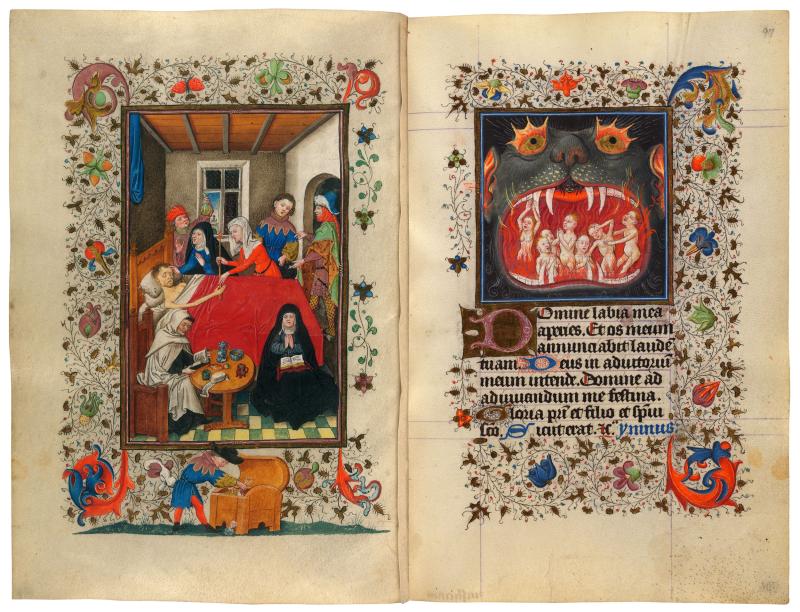 97
Domine labia mea
aperies. Et os meum
annunciabit laudē
tuam. Deus in adiutoriū
meum intende. Domine ad
adiuuandum me festina.
Gloria pri̅ et filio et spui̅
sco̅. Sicut erat. ꝛc. ymnus.